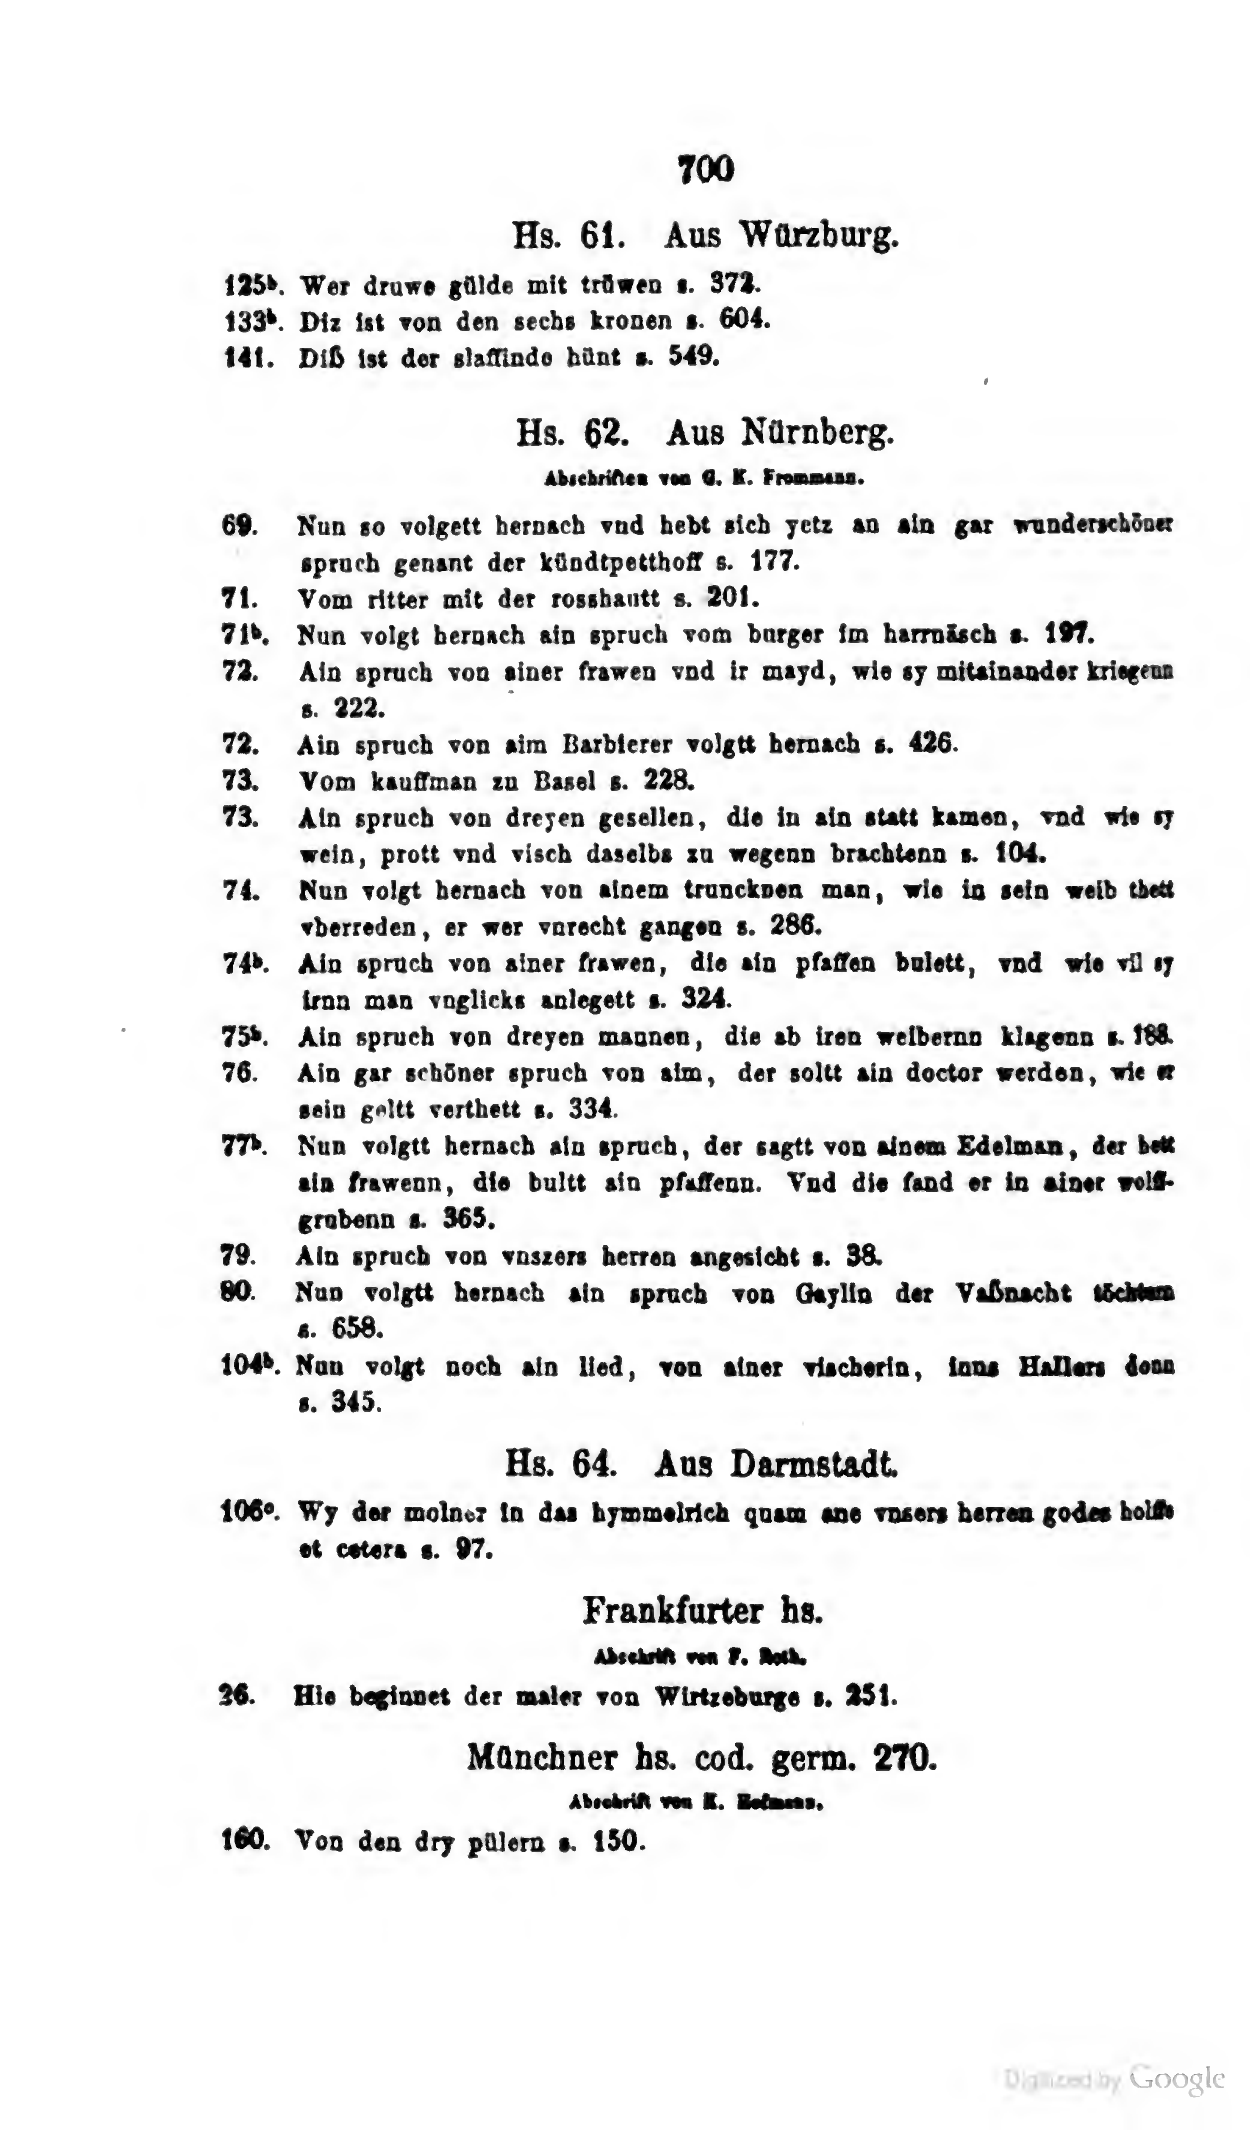 700
Hs. 61. Aus Würzburg.
125b. Wer druwe gülde mit trüwen s. 372.
133b. Diz ist von den sechs kronen s. 604.
141. Diß ist der slaffinde hünt s. 549.
Hs. 62. Aus Nürnberg.
Abschriften von G. K. Frommann.
69. Nun so volgett hernach vnd hebt sich yetz an ain gar wunderschöner
spruch genant der kündtpetthoff s. 177.
71. Vom ritter mit der rosshautt s. 201.
71b. Nun volgt hernach ain spruch vom burger im harrnäsch s. 197.
72. Ain spruch von ainer frawen vnd ir mayd, wie sy mitainander kriegenn
s. 222.
72. Ain spruch von aim Barbierer volgtt hernach s. 426.
73. Vom kauffman zu Basel s. 228.
73. Ain spruch von dreyen gesellen, die in ain statt kamen, vnd wie sy
wein, prott vnd visch daselbs zu wegenn brachtenn s. 104.
74. Nun volgt hernach von ainem truncknen man, wie in sein weib thett
vberreden, er wer vnrecht gangen s. 286.
74b. Ain spruch von ainer frawen, die ain pfaffen bulett, vnd wie vil sy
irnn man vnglicks anlegett s. 324.
75b. Ain spruch von dreyen mannen, die ab iren weibernn klagenn s. 188.
76. Ain gar schöner spruch von aim, der soltt ain doctor werden, wie er
sein geltt verthett s. 334.
77b. Nun volgtt hernach ain spruch, der sagtt von ainem Edelman, der hett
ain frawenn, die bultt ain pfaffenn. Vnd die fand er in ainer wolff-
grubenn s. 365.
79. Ain spruch von vnszers herren angesicht s. 38.
80. Nun volgtt hernach ain spruch von Gaylin der Vaßnacht töchtern
s. 658.
104b. Nun volgt noch ain lied, von ainer vischerin, inns Hallers donn
s. 345.
Hs. 64. Aus Darmstadt.
106c. Wy der molner in das hymmelrich quam ane vnsers herren godes holffe
et cetera s. 97.
Frankfurter hs.
Abschrift von F. Roth.
26. Hie beginnet der maler von Wirtzeburge s. 251.
Münchner hs. cod. germ. 270.
Abschrift von K. Hofmann.
160. Von den dry pülern s. 150.
Digitized by Google